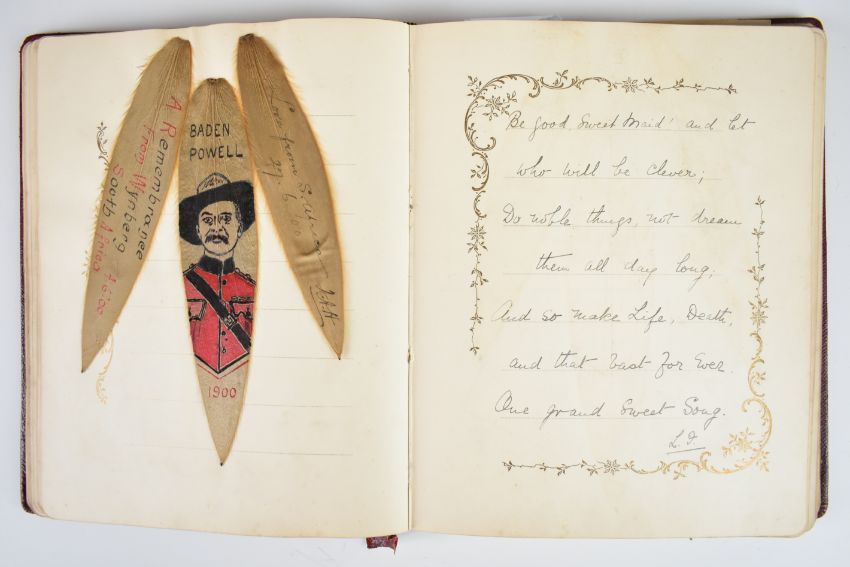 A Remembrance
From Wynberg
South Africa
1600
BADEN
POWELL
1900
Love from S.
27. 6. 00
Be good, Sweet Maid! and let
who will be clever;
Do noble things, not dream
them all day long;
And so make Life, Death,
and that vast For Ever
One grand Sweet Song.
L.F.